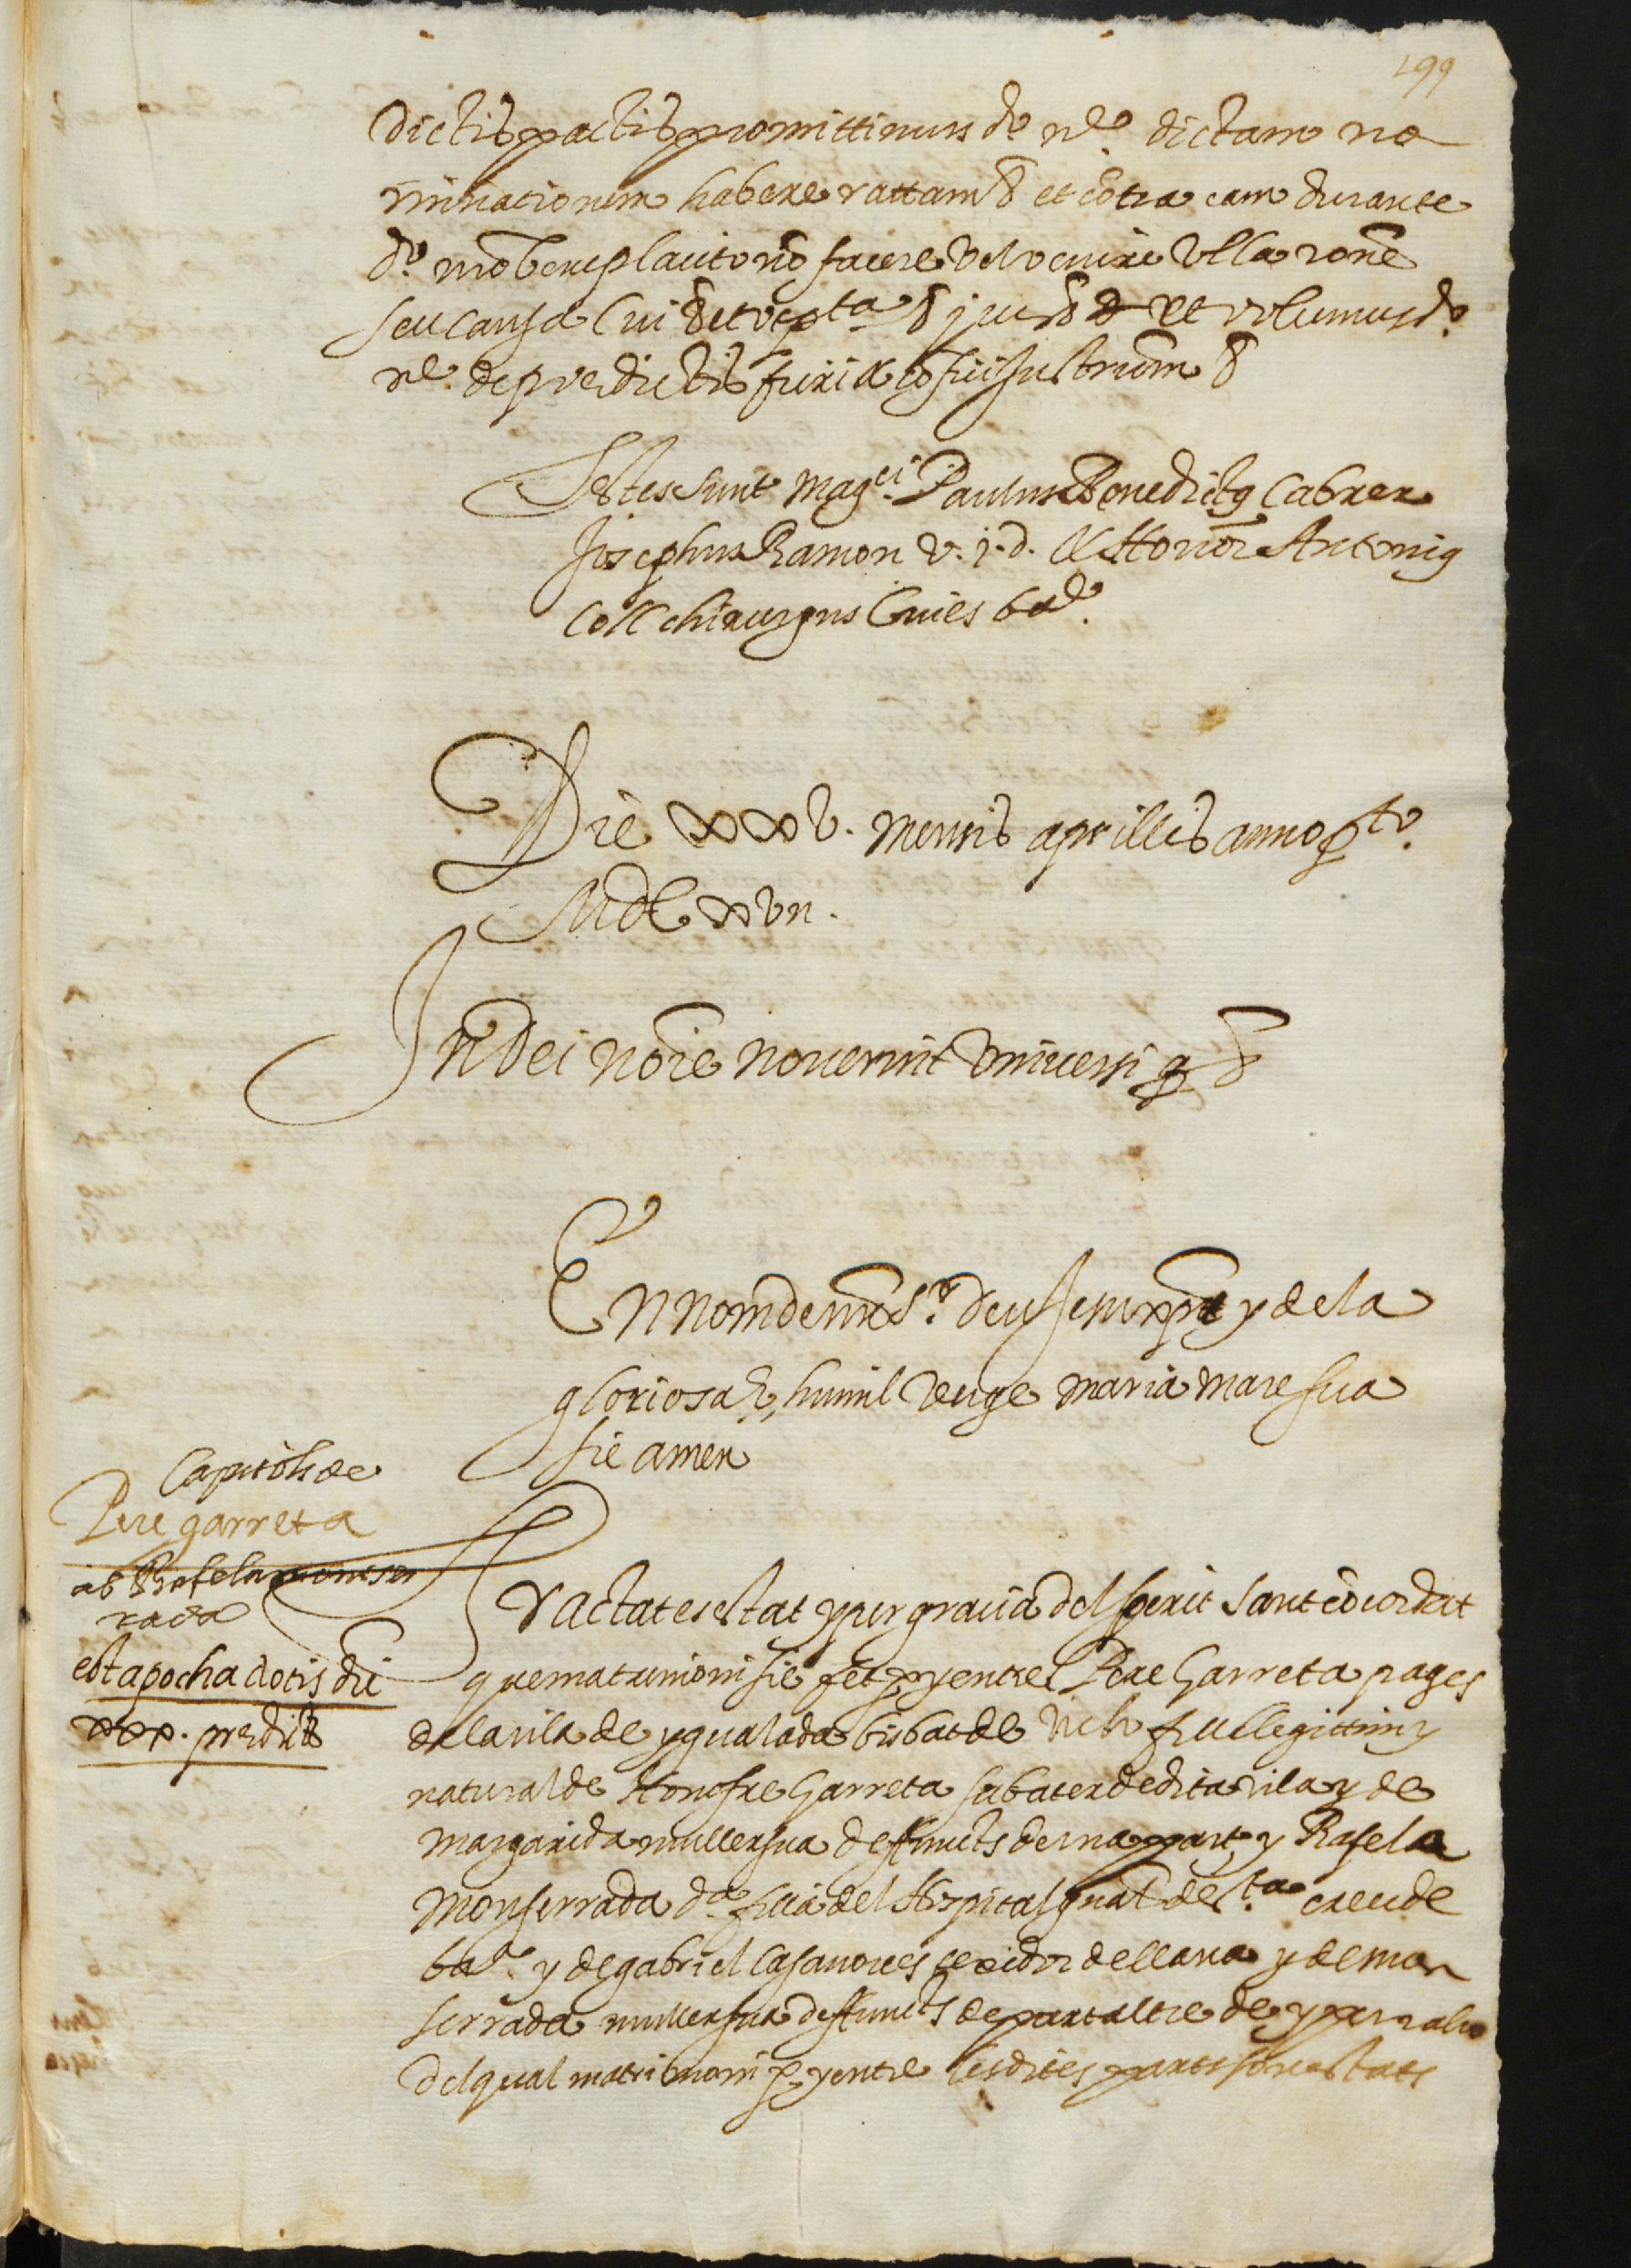 199
dictis pactis promittimus d.º n.e dictam no
minationem habere rattam & et cõtra eam durante
d.º nrõ beneplacito nõ facere vel venire ulla rone
seu causa Cui & et volumus d.º
n.e de predictis fieri &
Testes sunt mag.ci Paulus Benedictus Cabrer
Josephus Ramon v. j. d. & Honor Antonius
Coll chirurgus Cives bar.e
Die xxv. mensis aprillis anno p.to
MDLxxvii.
In Dei noie noverint universi q &
En nom de nre S.r deu Jesu xpist y de la
gloriosa E humil verge maria mare sua
sie amen
Capitols de
Pere garreta
ab Rafela monser
rada
est apocha dotis die
xxx. predict
Tractat es estat y per gracia del sperit sant cõcordat
que matrimoni sie fet p y entre Pere Garreta pages
de la vila de ygualada bisbat de Vich fill legittim y
natural de Honofre Garreta sabater de dita vila y de
Margarida muller sua deffuncts de una part y Rafela
Monserrada d.a filla del Hospital gnal de s.ta creu de
bar.a y de gabriel Casanoves texidor de llana y de mon
serrada muller sua deffuncts de part altre de y per raho
del qual matrimoni p y entre les dites parts son estats